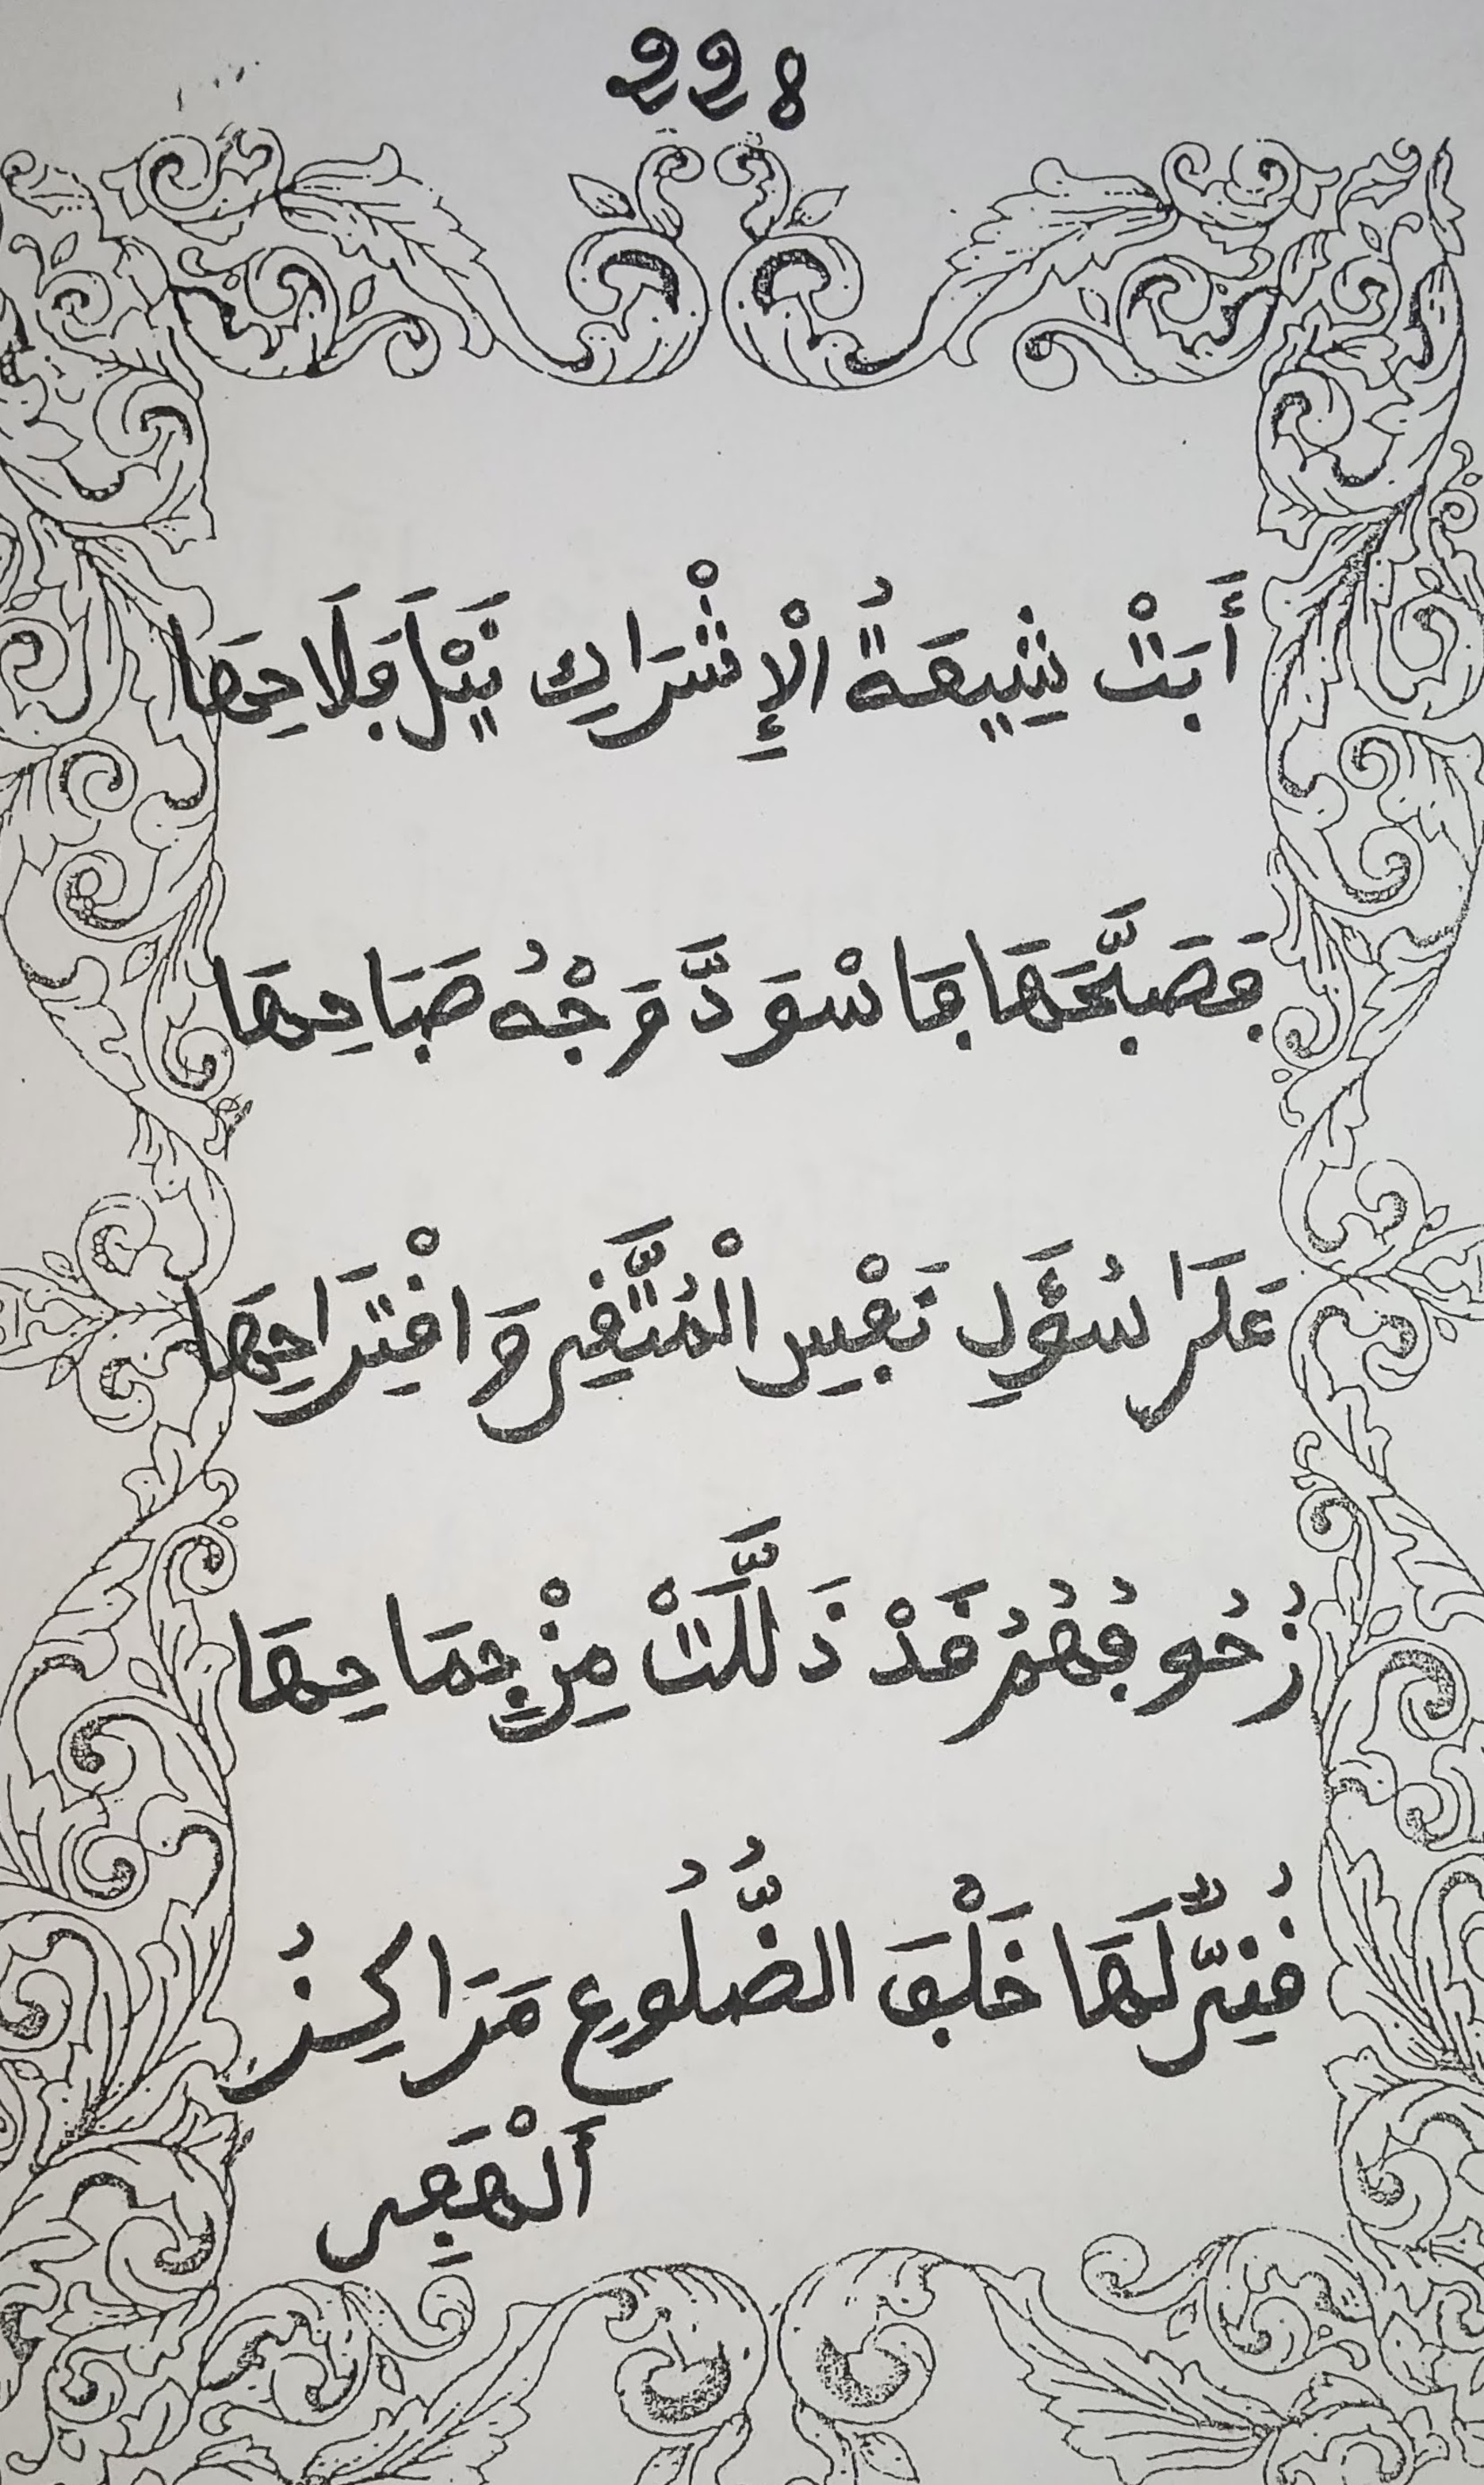 228
أَبَتْ شِيعَةُ الْإِشْرَاكِ نَيْلَ فَلَاحِهَا
فَصَبَّحَهَا فَاسْوَدَّ وَجْهُ صَبَاحِهَا
عَلَى سُؤَلِ نَفْسِ الْمُتَّقِي وَاقْتِرَاحِهَا
زُحُوفُهُمُ قَدْ ذَلَّلَتْ مِنْ جِمَاحِهَا
قُنِيٌّ لَهَا خَلْفَ الضُّلُوعِ مَرَاكِزُ
أَلْهَفِى